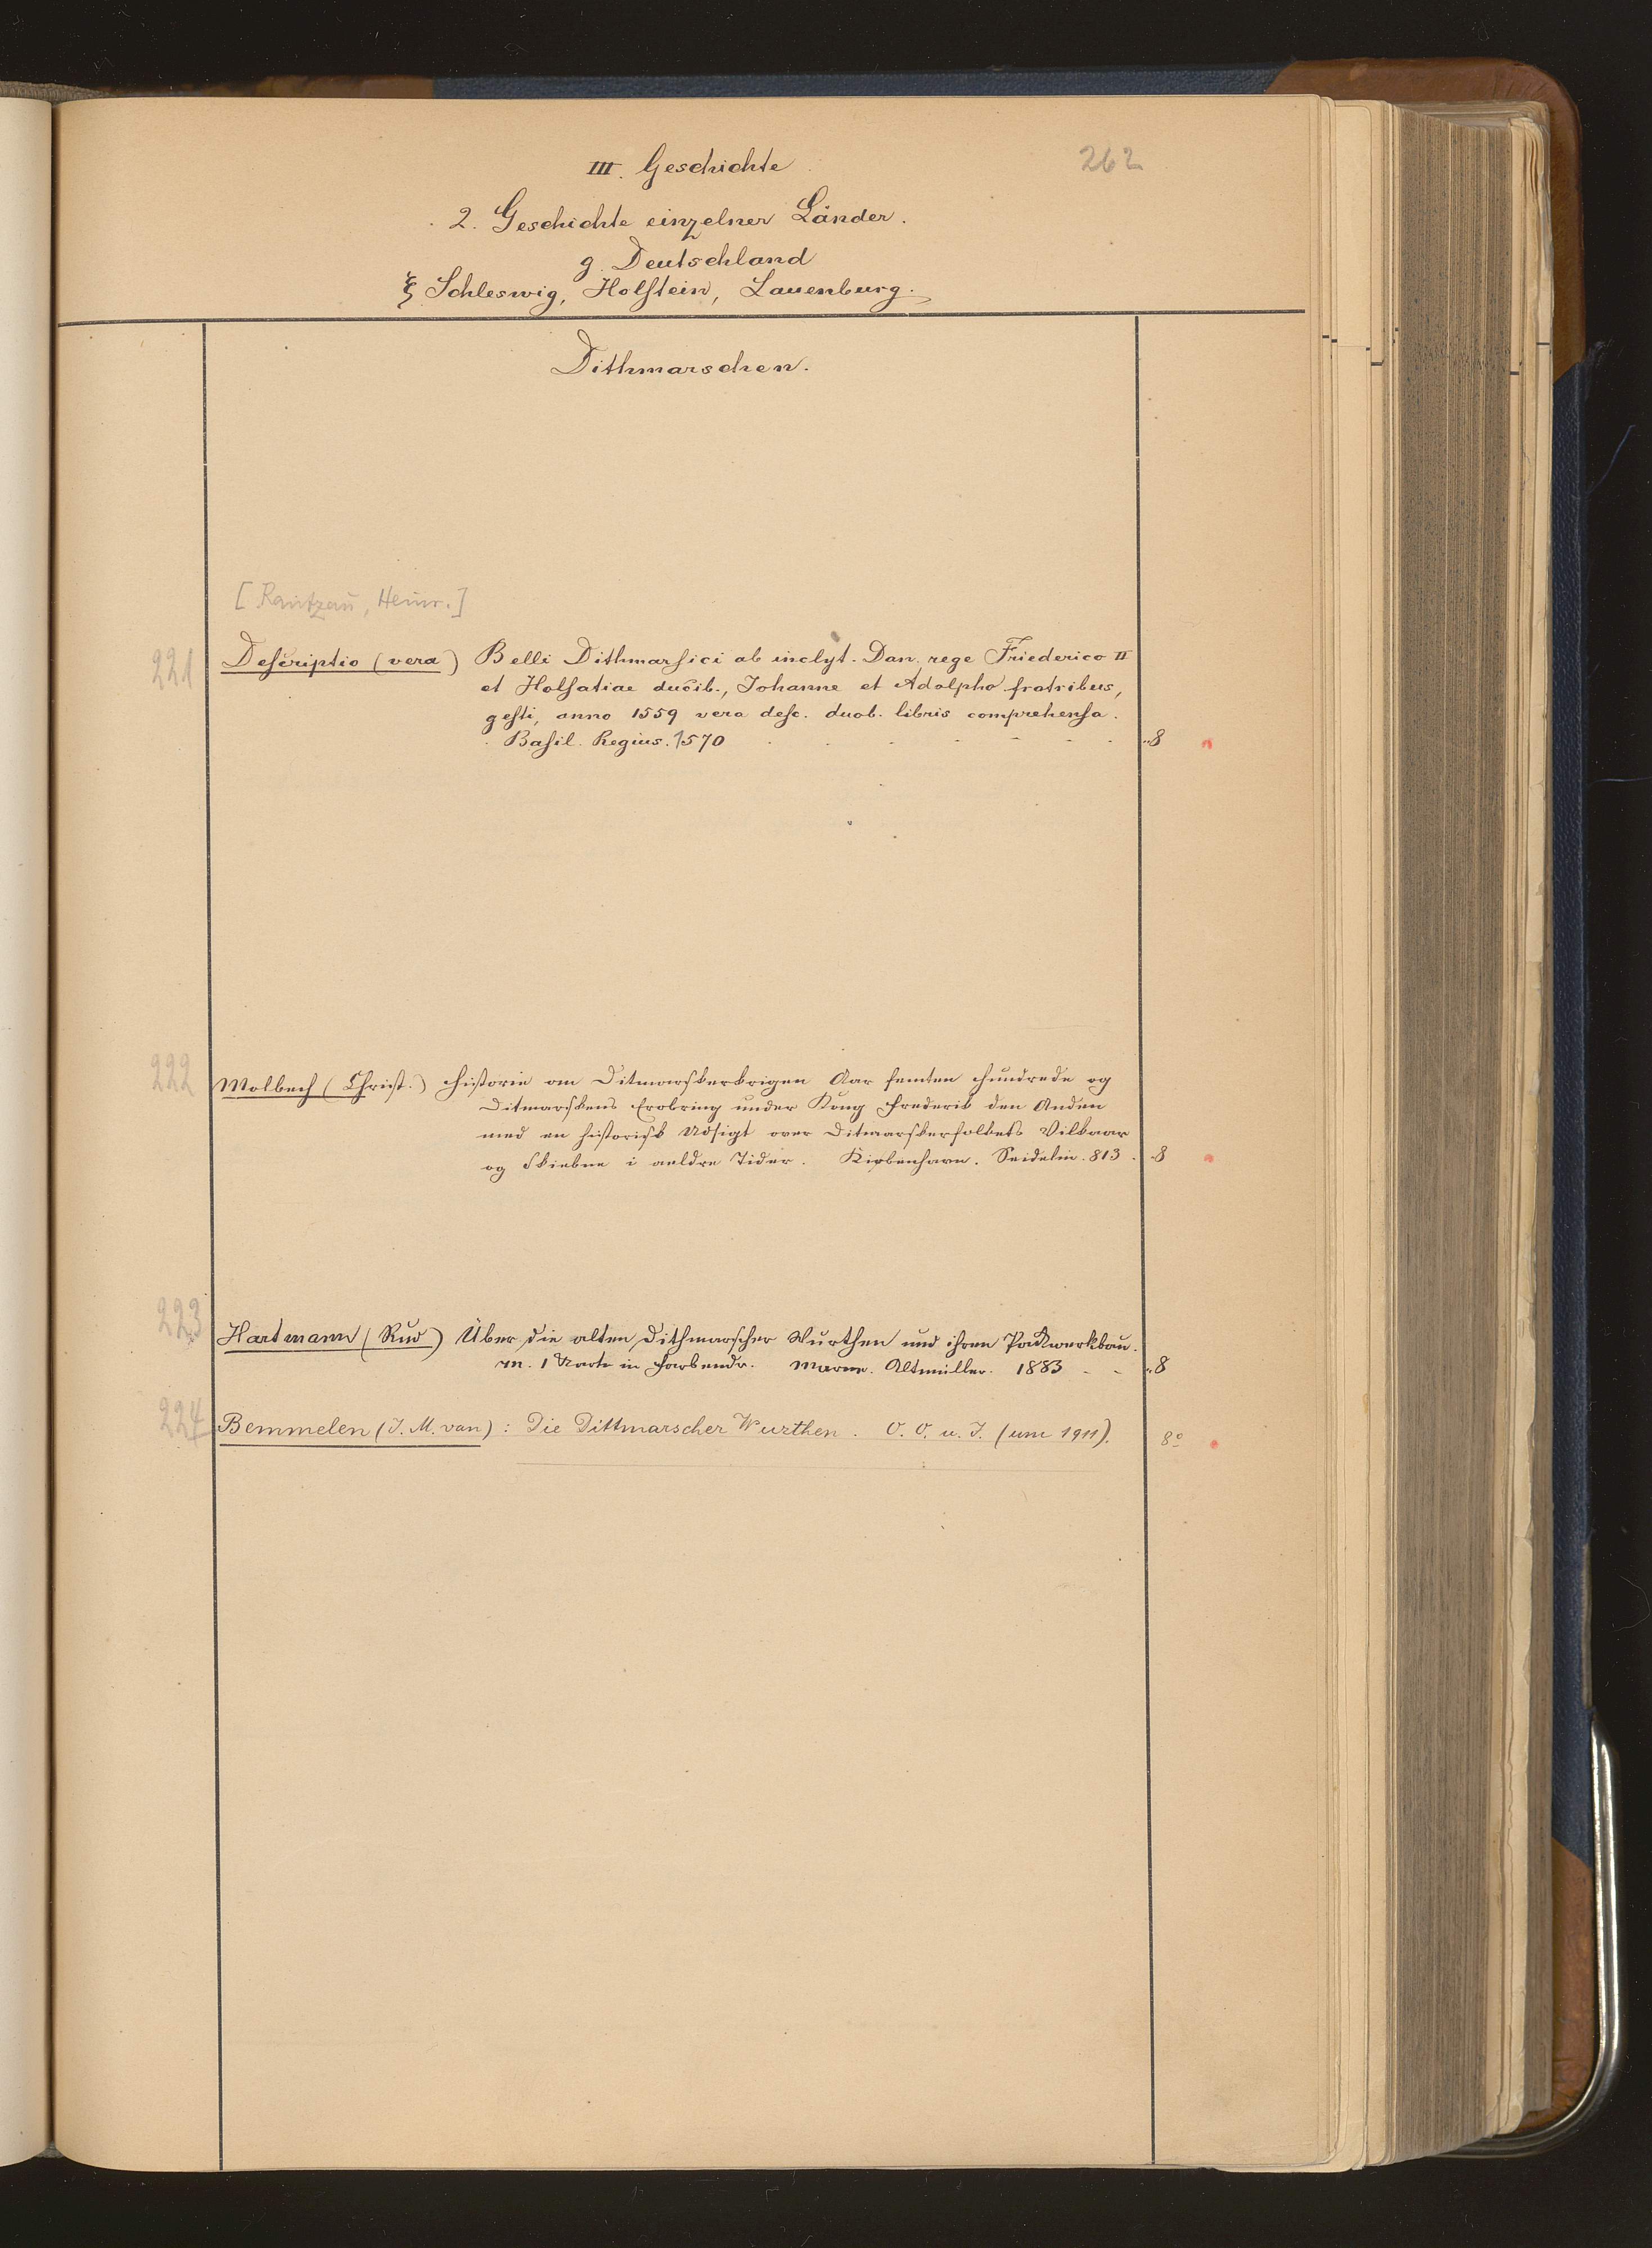 III. Geschichte
262
2. Geschichte einzelner Länder.
g. Deutschland
ξ Schleswig, Holstein, Lauenburg.
Dithmarschen.
[Rantzau, Heinr.]
221 Descriptio (vera) Belli Dithmarsici ab inclyt. Dan. rege Friederico II
et Holsatiae ducib., Johanne et Adolpho fratribus,
gesti, anno 1559 vera desc. duob. libris comprehensa.
Basil. Regius. 1570 8
222 Molbech (Christ.) Historie om Ditmarskerkrigen Aar femten hundrede og
Ditmarskens Erobring under Kong Frederik den Anden
med en historisk Udsigt over Ditmarskerfolkets Vilkaar
og Skiebne i aeldre Tider. Kiøbenhavn. Seidelin. 813. 8
223 Hartmann (Rud) Über die alten Dithmarscher Wurthen und ihren Packwerkbau.
m. 1 Karte in Farbendr. Marne. Altmüller. 1883 - - 8
224 Bemmelen (J. M. van): Die Dittmarscher Wurthen. O. O. u. J. (um 1911). 8°